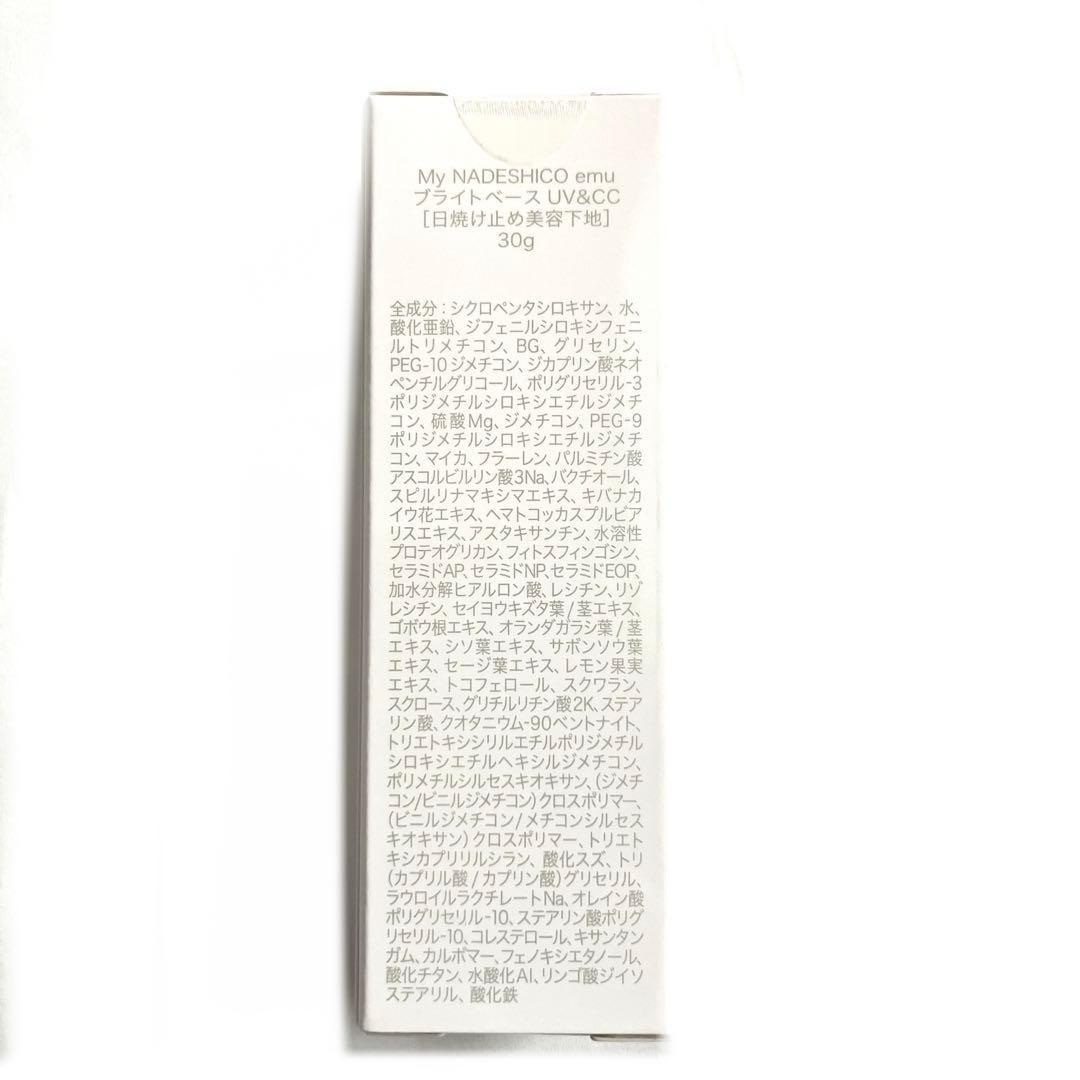 My NADESHICO emu
ブライトベース UV&CC
［日焼け止め美容下地］
30g
全成分：シクロペンタシロキサン、水、
酸化亜鉛、ジフェニルシロキシフェニ
ルトリメチコン、BG、グリセリン、
PEG-10ジメチコン、ジカプリン酸ネオ
ペンチルグリコール、ポリグリセリル-3
ポリジメチルシロキシエチルジメチ
コン、硫酸Mg、ジメチコン、PEG-9
ポリジメチルシロキシエチルジメチ
コン、マイカ、フラーレン、パルミチン酸
アスコルビルリン酸3Na、バクチオール、
スピルリナマキシマエキス、キバナカ
イウ花エキス、ヘマトコッカスプルビア
リスエキス、アスタキサンチン、水溶性
プロテオグリカン、フィトスフィンゴシン、
セラミドAP、セラミドNP、セラミドEOP、
加水分解ヒアルロン酸、レシチン、リゾ
レシチン、セイヨウキズタ葉/茎エキス、
ゴボウ根エキス、オランダガラシ葉/茎
エキス、シソ葉エキス、サボンソウ葉
エキス、セージ葉エキス、レモン果実
エキス、トコフェロール、スクワラン、
スクロース、グリチルリチン酸2K、ステア
リン酸、クオタニウム-90ベントナイト、
トリエトキシシリルエチルポリジメチル
シロキシエチルヘキシルジメチコン、
ポリメチルシルセスキオキサン、(ジメチ
コン/ビニルジメチコン)クロスポリマー、
(ビニルジメチコン/メチコンシルセス
キオキサン)クロスポリマー、トリエト
キシカプリリルシラン、酸化スズ、トリ
(カプリル酸/カプリン酸)グリセリル、
ラウロイルラクチレートNa、オレイン酸
ポリグリセリル-10、ステアリン酸ポリグ
リセリル-10、コレステロール、キサンタン
ガム、カルボマー、フェノキシエタノール、
酸化チタン、水酸化Al、リンゴ酸ジイソ
ステアリル、酸化鉄